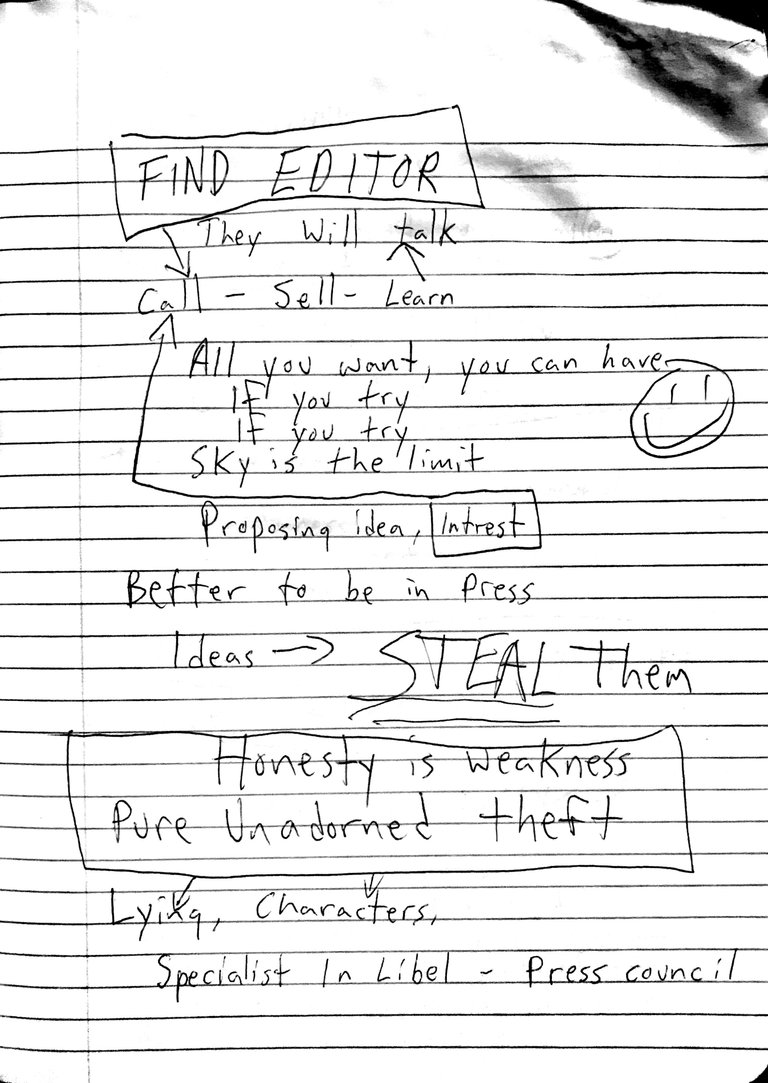 FIND EDITOR
They Will talk
Call - Sell - Learn
All you want, you can have
IF you try
IF you try
Sky is the limit
Proposing idea, Intrest
Better to be in Press
Ideas → STEAL Them
Honesty is weakness
Pure Unadorned theft
Lying, Characters,
Specialist In Libel - Press council